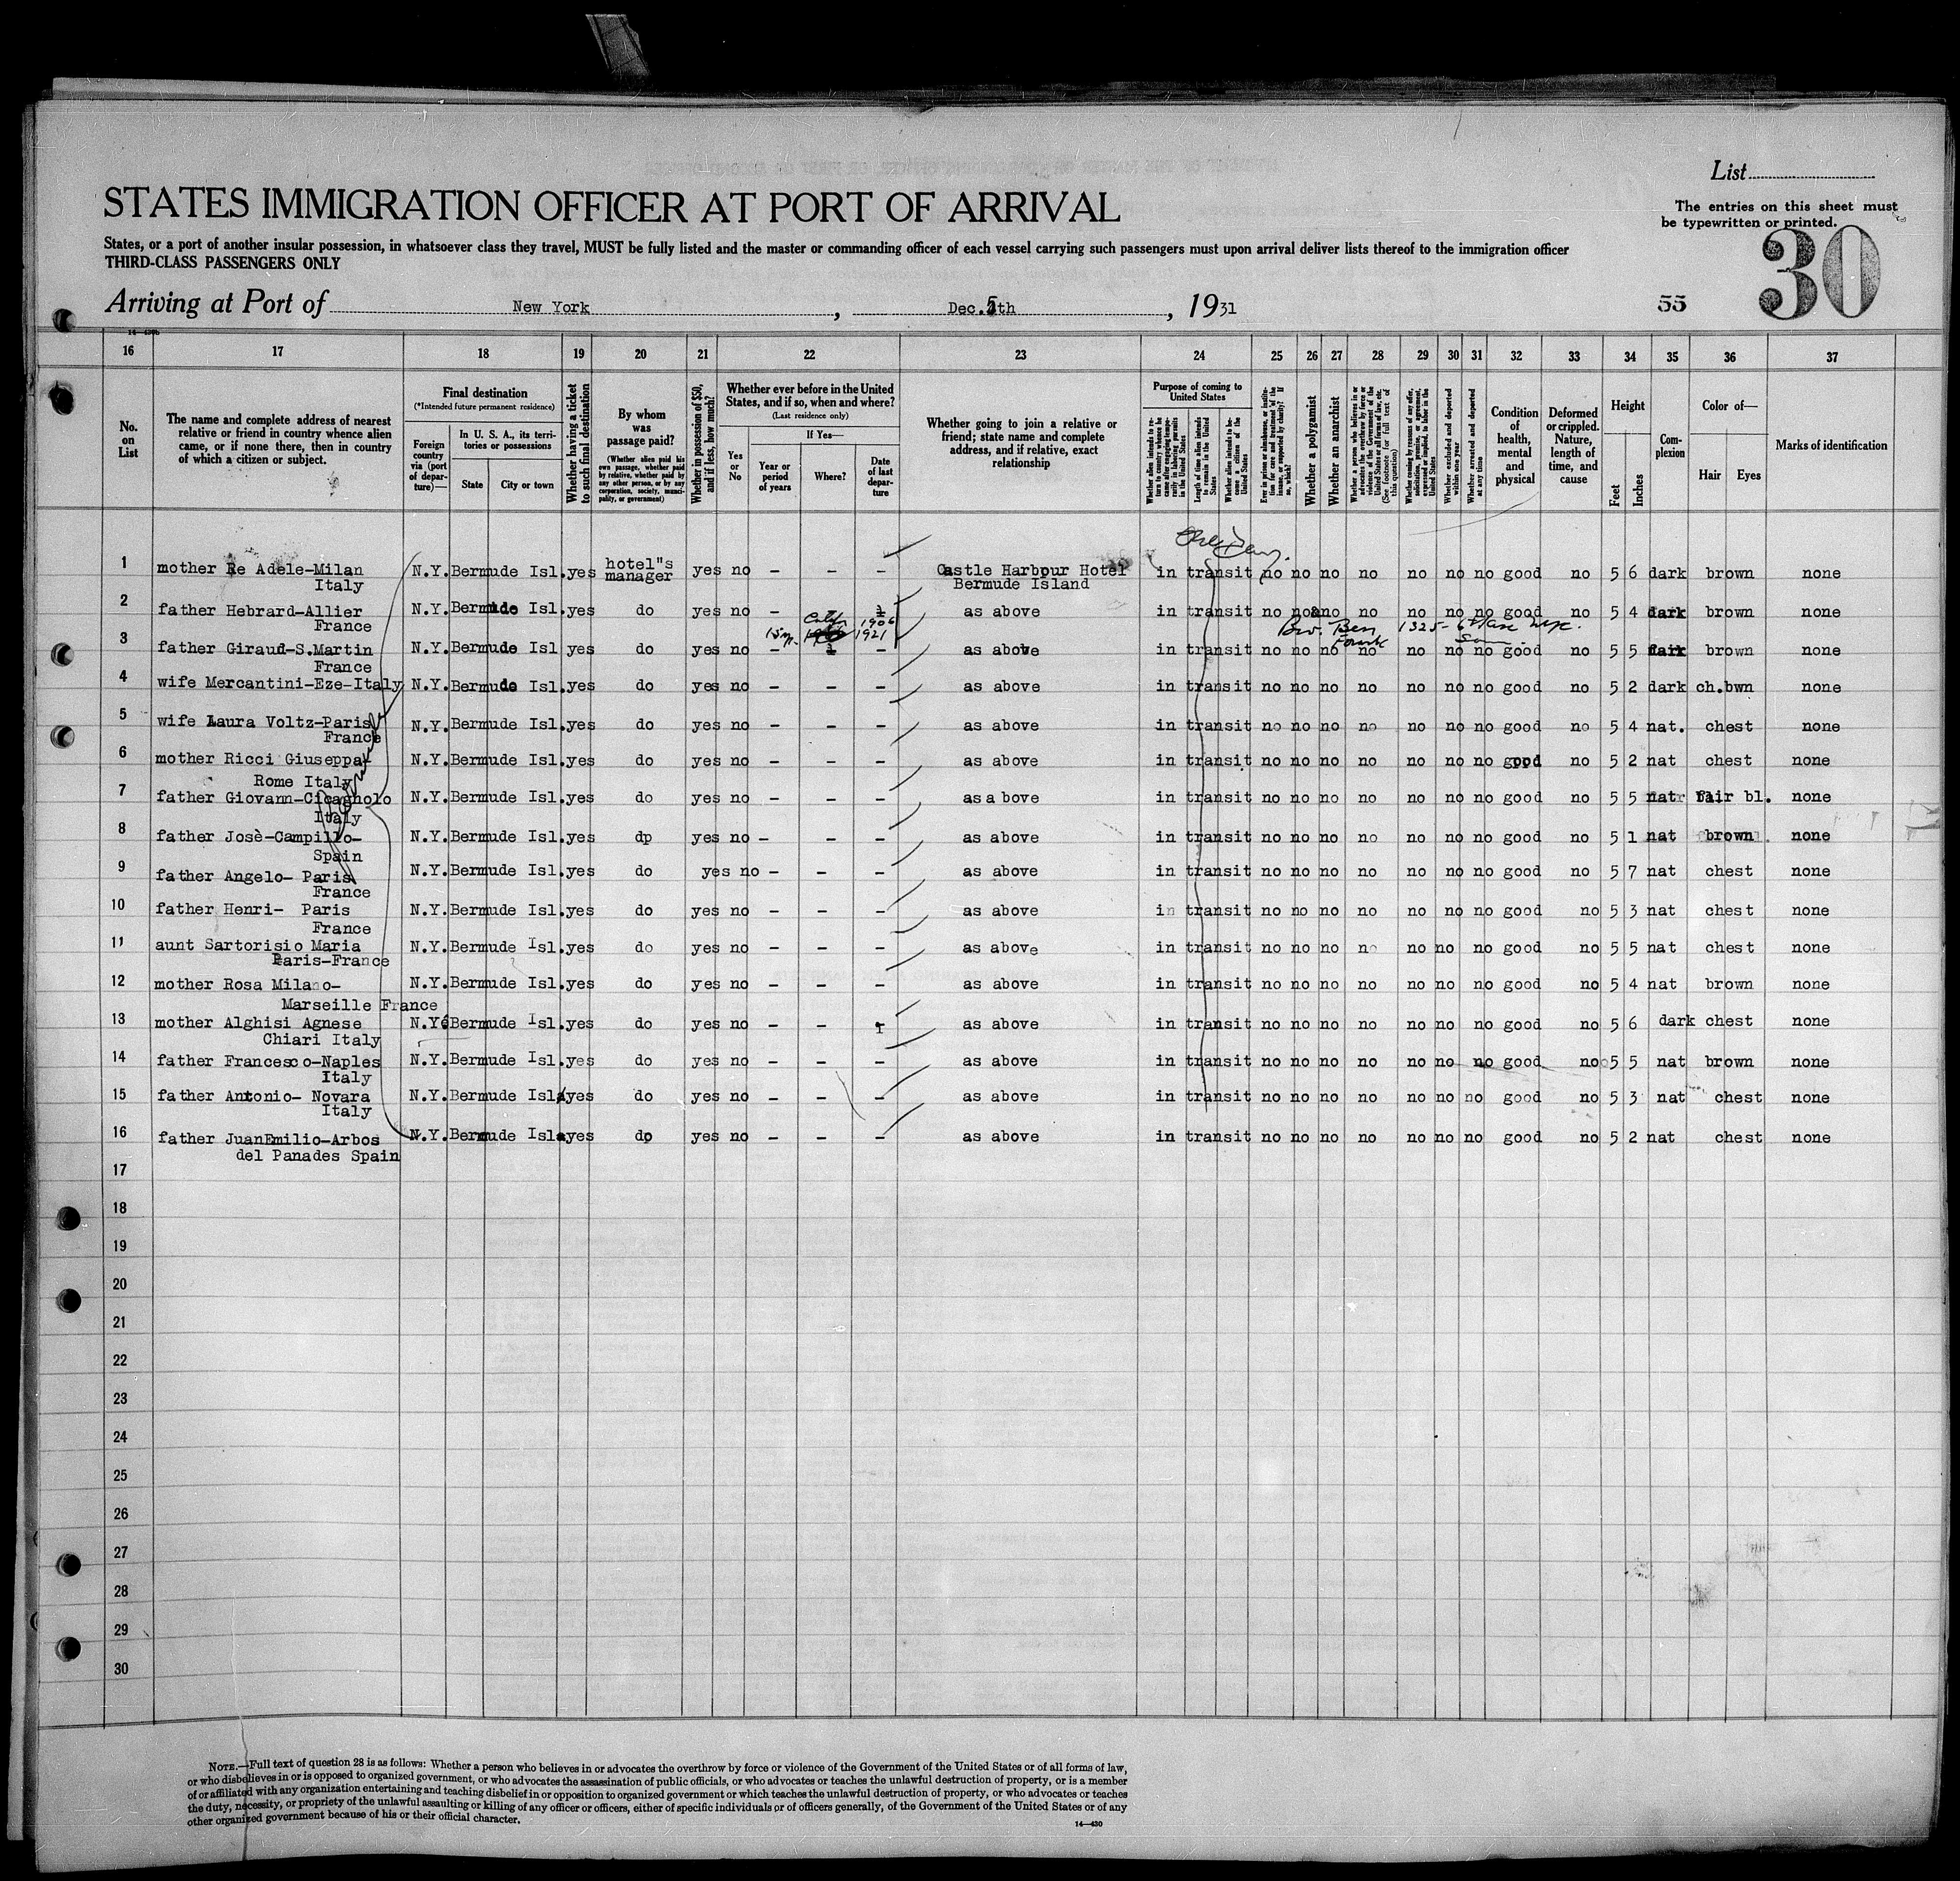 List
STATES IMMIGRATION OFFICER AT PORT OF ARRIVAL
The entries on this sheet must
be typewritten or printed.
States, or a port of another insular possession, in whatsoever class they travel, MUST be fully listed and the master or commanding officer of each vessel carrying such passengers must upon arrival deliver lists thereof to the immigration officer
THIRD-CLASS PASSENGERS ONLY
30
Arriving at Port of New York, Dec. 5th, 1931
55
16 17 18 19 20 21 22 23 24 25 26 27 28 29 30 31 32 33 34 35 36 37
No. on List
The name and complete address of nearest relative or friend in country whence alien came, or if none there, then in country of which a citizen or subject.
Final destination
(*Intended future permanent residence)
Foreign country via (port of departure)—
In U. S. A., its territories or possessions
State
City or town
Whether having a ticket to such final destination
By whom was passage paid?
(Whether alien paid his own passage, whether paid by relative, whether paid by any other person, or by any corporation, society, municipality, or government)
Whether in possession of $50, and if less, how much?
Whether ever before in the United States, and if so, when and where?
(Last residence only)
Yes or No
If Yes—
Year or period of years
Where?
Date of last departure
Whether going to join a relative or friend; state name and complete address, and if relative, exact relationship
Purpose of coming to United States
Whether alien intends to return to country whence he came after engaging temporarily in laboring pursuits in the United States
Length of time alien intends to remain in the United States
Whether alien intends to become a citizen of the United States
Ever in prison or almshouse, or institution for care and treatment of the insane, or supported by charity? If so, which?
Whether a polygamist
Whether an anarchist
Whether a person who believes in or advocates the overthrow by force or violence of the Government of the United States or all forms of law, etc. (See footnote for full text of this question)
Whether coming by reasons of any offer, solicitation, promise, or agreement, expressed or implied, to labor in the United States
Whether excluded and deported within one year
Whether arrested and deported at any time
Condition of health, mental and physical
Deformed or crippled. Nature, length of time, and cause
Height
Feet
Inches
Complexion
Color of—
Hair
Eyes
Marks of identification
1 mother Re Adele-Milan N.Y. Bermude Isl. yes hotel"s manager yes no - - - Castle Harbour Hotel in transit no no no no no no no good no 5 6 dark brown none
Italy
Bermude Island
2 father Hebrard-Allier N.Y. Bermude Isl. yes do yes no - as above in transit no no no no no no no good no 5 4 dark brown none
France
1906
1921
Bro. Ben 1325-6
3 father Giraud-S.Martin N.Y. Bermude Isl yes do yes no - - as above in transit no no no no no no no good no 5 5 brown none
France
4 wife Mercantini-Eze-Italy N.Y. Bermude Isl. yes do yes no - - - as above in transit no no no no no no no good no 5 2 dark ch.bwn none
5 wife Laura Voltz-Paris N.Y. Bermude Isl. yes do yes no - - - as above in transit no no no no no no no good no 5 4 nat. chest none
France
6 mother Ricci Giuseppa N.Y. Bermude Isl. yes do yes no - - - as above in transit no no no no no no no good no 5 2 nat chest none
Rome Italy
7 father Giovann-Cicagholo N.Y. Bermude Isl. yes do yes no - - - asa bove in transit no no no no no no no good no 5 5 nat fair bl. none
Italy
8 father Josè-Campillo- N.Y. Bermude Isl. yes dp yes no - - - as above in transit no no no no no no no good no 5 1 nat brown none
Spain
9 father Angelo- Paris N.Y. Bermude Isl. yes do yes no - - - as above in transit no no no no no no no good no 5 7 nat chest none
France
10 father Henri- Paris N.Y. Bermude Isl. yes do yes no - - - as above in transit no no no no no no no good no 5 3 nat chest none
France
11 aunt Sartorisio Maria N.Y. Bermude Isl. yes do yes no - - - as above in transit no no no no no no no good no 5 5 nat chest none
Paris-France
12 mother Rosa Milano- N.Y. Bermude Isl. yes do yes no - - - as above in transit no no no no no no no good no 5 4 nat brown none
Marseille France
13 mother Alghisi Agnese N.Y. Bermude Isl. yes do yes no - - as above in transit no no no no no no no good no 5 6 dark chest none
Chiari Italy
14 father Francesco-Naples N.Y. Bermude Isl. yes do yes no - - - as above in transit no no no no no no no good no 5 5 nat brown none
Italy
15 father Antonio- Novara N.Y. Bermude Isl. yes do yes no - - - as above in transit no no no no no no no good no 5 3 nat chest none
Italy
16 father JuanEmilio-Arbos N.Y. Bermude Isl. yes do yes no - - - as above in transit no no no no no no no good no 5 2 nat chest none
del Panades Spain
17
18
19
20
21
22
23
24
25
26
27
28
29
30
NOTE.—Full text of question 28 is as follows: Whether a person who believes in or advocates the overthrow by force or violence of the Government of the United States or of all forms of law,
or who disbelieves in or is opposed to organized government, or who advocates the assassination of public officials, or who advocates or teaches the unlawful destruction of property, or is a member
of or affiliated with any organization entertaining and teaching disbelief in or opposition to organized government or which teaches the unlawful destruction of property, or who advocates or teaches
the duty, necessity, or propriety of the unlawful assaulting or killing of any officer or officers, either of specific individuals or of officers generally, of the Government of the United States or of any
other organized government because of his or their official character.
14—430